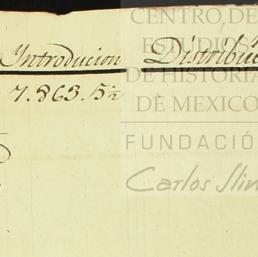 CENTRO DE
ESTUDIOS
DE HISTORIA
DE MEXICO
FUNDACIÓ
Carlos Slim
Introducion Distribu
7.863.5½